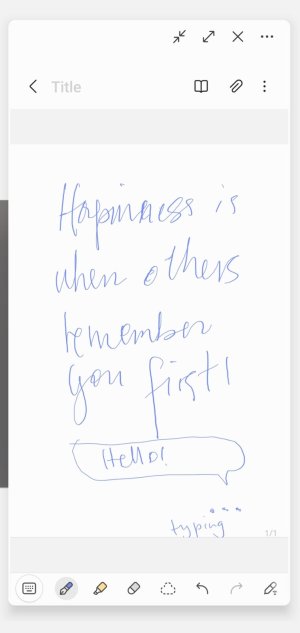 Title
Happiness is
when others
remember
you first!
Hello!
typing...
1/1